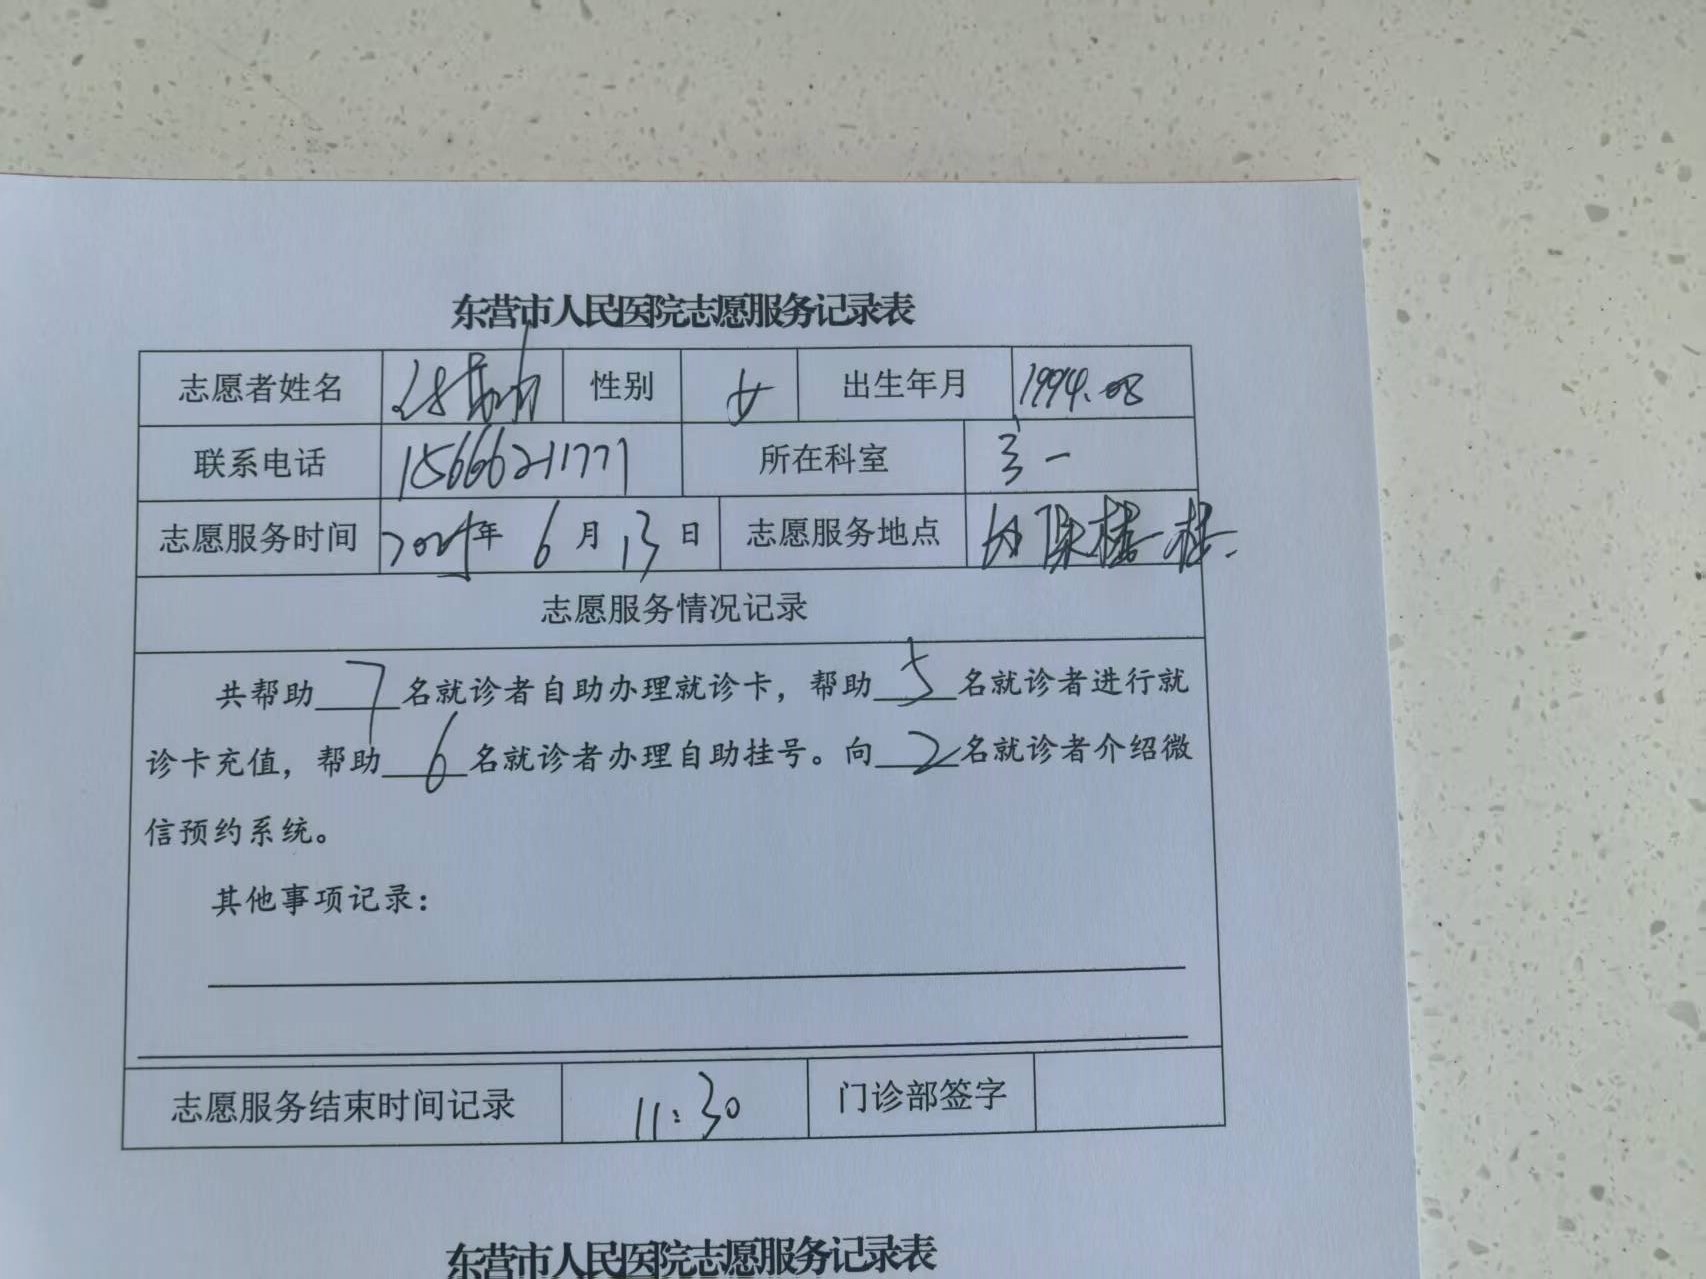 东营市人民医院志愿服务记录表
志愿者姓名 性别 女 出生年月 1994.08
联系电话 15666211771 所在科室
志愿服务时间 年 6 月 13 日 志愿服务地点
志愿服务情况记录
共帮助 7 名就诊者自助办理就诊卡，帮助 5 名就诊者进行就
诊卡充值，帮助 6 名就诊者办理自助挂号。向 2 名就诊者介绍微
信预约系统。
其他事项记录：
志愿服务结束时间记录 11:30 门诊部签字
东营市人民医院志愿服务记录表